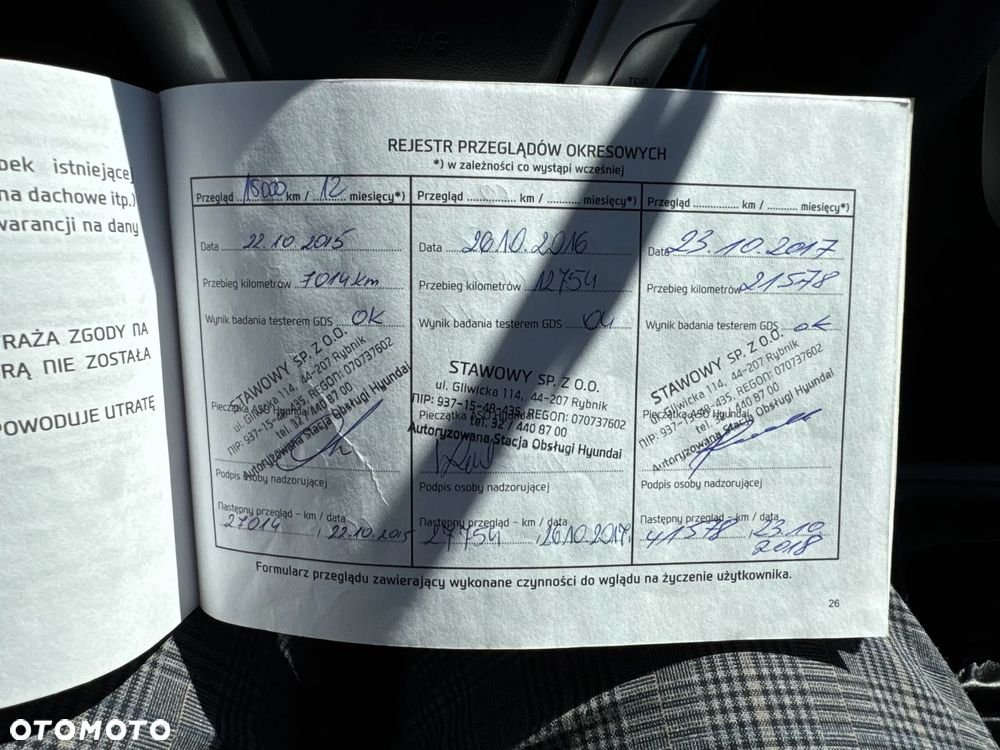 AIRBAG
TRIP
pek istniejącej
na dachowe itp.)
warancji na dany
RAŻA ZGODY NA
RĄ NIE ZOSTAŁA
POWODUJE UTRATĘ
REJESTR PRZEGLĄDÓW OKRESOWYCH
*) w zależności co wystąpi wcześniej
Przegląd 15000 km / 12 miesięcy*)
Data 22.10.2015
Przebieg kilometrów 7014km
Wynik badania testerem GDS OK
STAWOWY SP. Z O.O.
ul. Gliwicka 114, 44-207 Rybnik
Pieczątka ASO Hyundai
NIP: 937-15-48-435, REGON: 070737602
tel. 32 / 440 87 00
Autoryzowana Stacja Obsługi Hyundai
Podpis osoby nadzorującej
Następny przegląd – km / data
27014 / 22.10.2015
Przegląd ............... km / ........... miesięcy*)
Data 26.10.2016
Przebieg kilometrów 12754
Wynik badania testerem GDS
STAWOWY SP. Z O.O.
ul. Gliwicka 114, 44-207 Rybnik
NIP: 937-15-48-435, REGON: 070737602
Pieczątka ASO Hyundai
tel. 32 / 440 87 00
Autoryzowana Stacja Obsługi Hyundai
Podpis osoby nadzorującej
Następny przegląd – km / data
27754 / 26.10.2017
Przegląd ............... km / ........... miesięcy*)
Data 23.10.2017
Przebieg kilometrów 21578
Wynik badania testerem GDS ok
STAWOWY SP. Z O.O.
ul. Gliwicka 114, 44-207 Rybnik
Pieczątka ASO Hyundai
NIP: 937-15-48-435, REGON: 070737602
tel. 32 / 440 87 00
Autoryzowana Stacja Obsługi Hyundai
Podpis osoby nadzorującej
Następny przegląd – km / data
41578 / 23.10
2018
Formularz przeglądu zawierający wykonane czynności do wglądu na życzenie użytkownika.
26
OTOMOTO